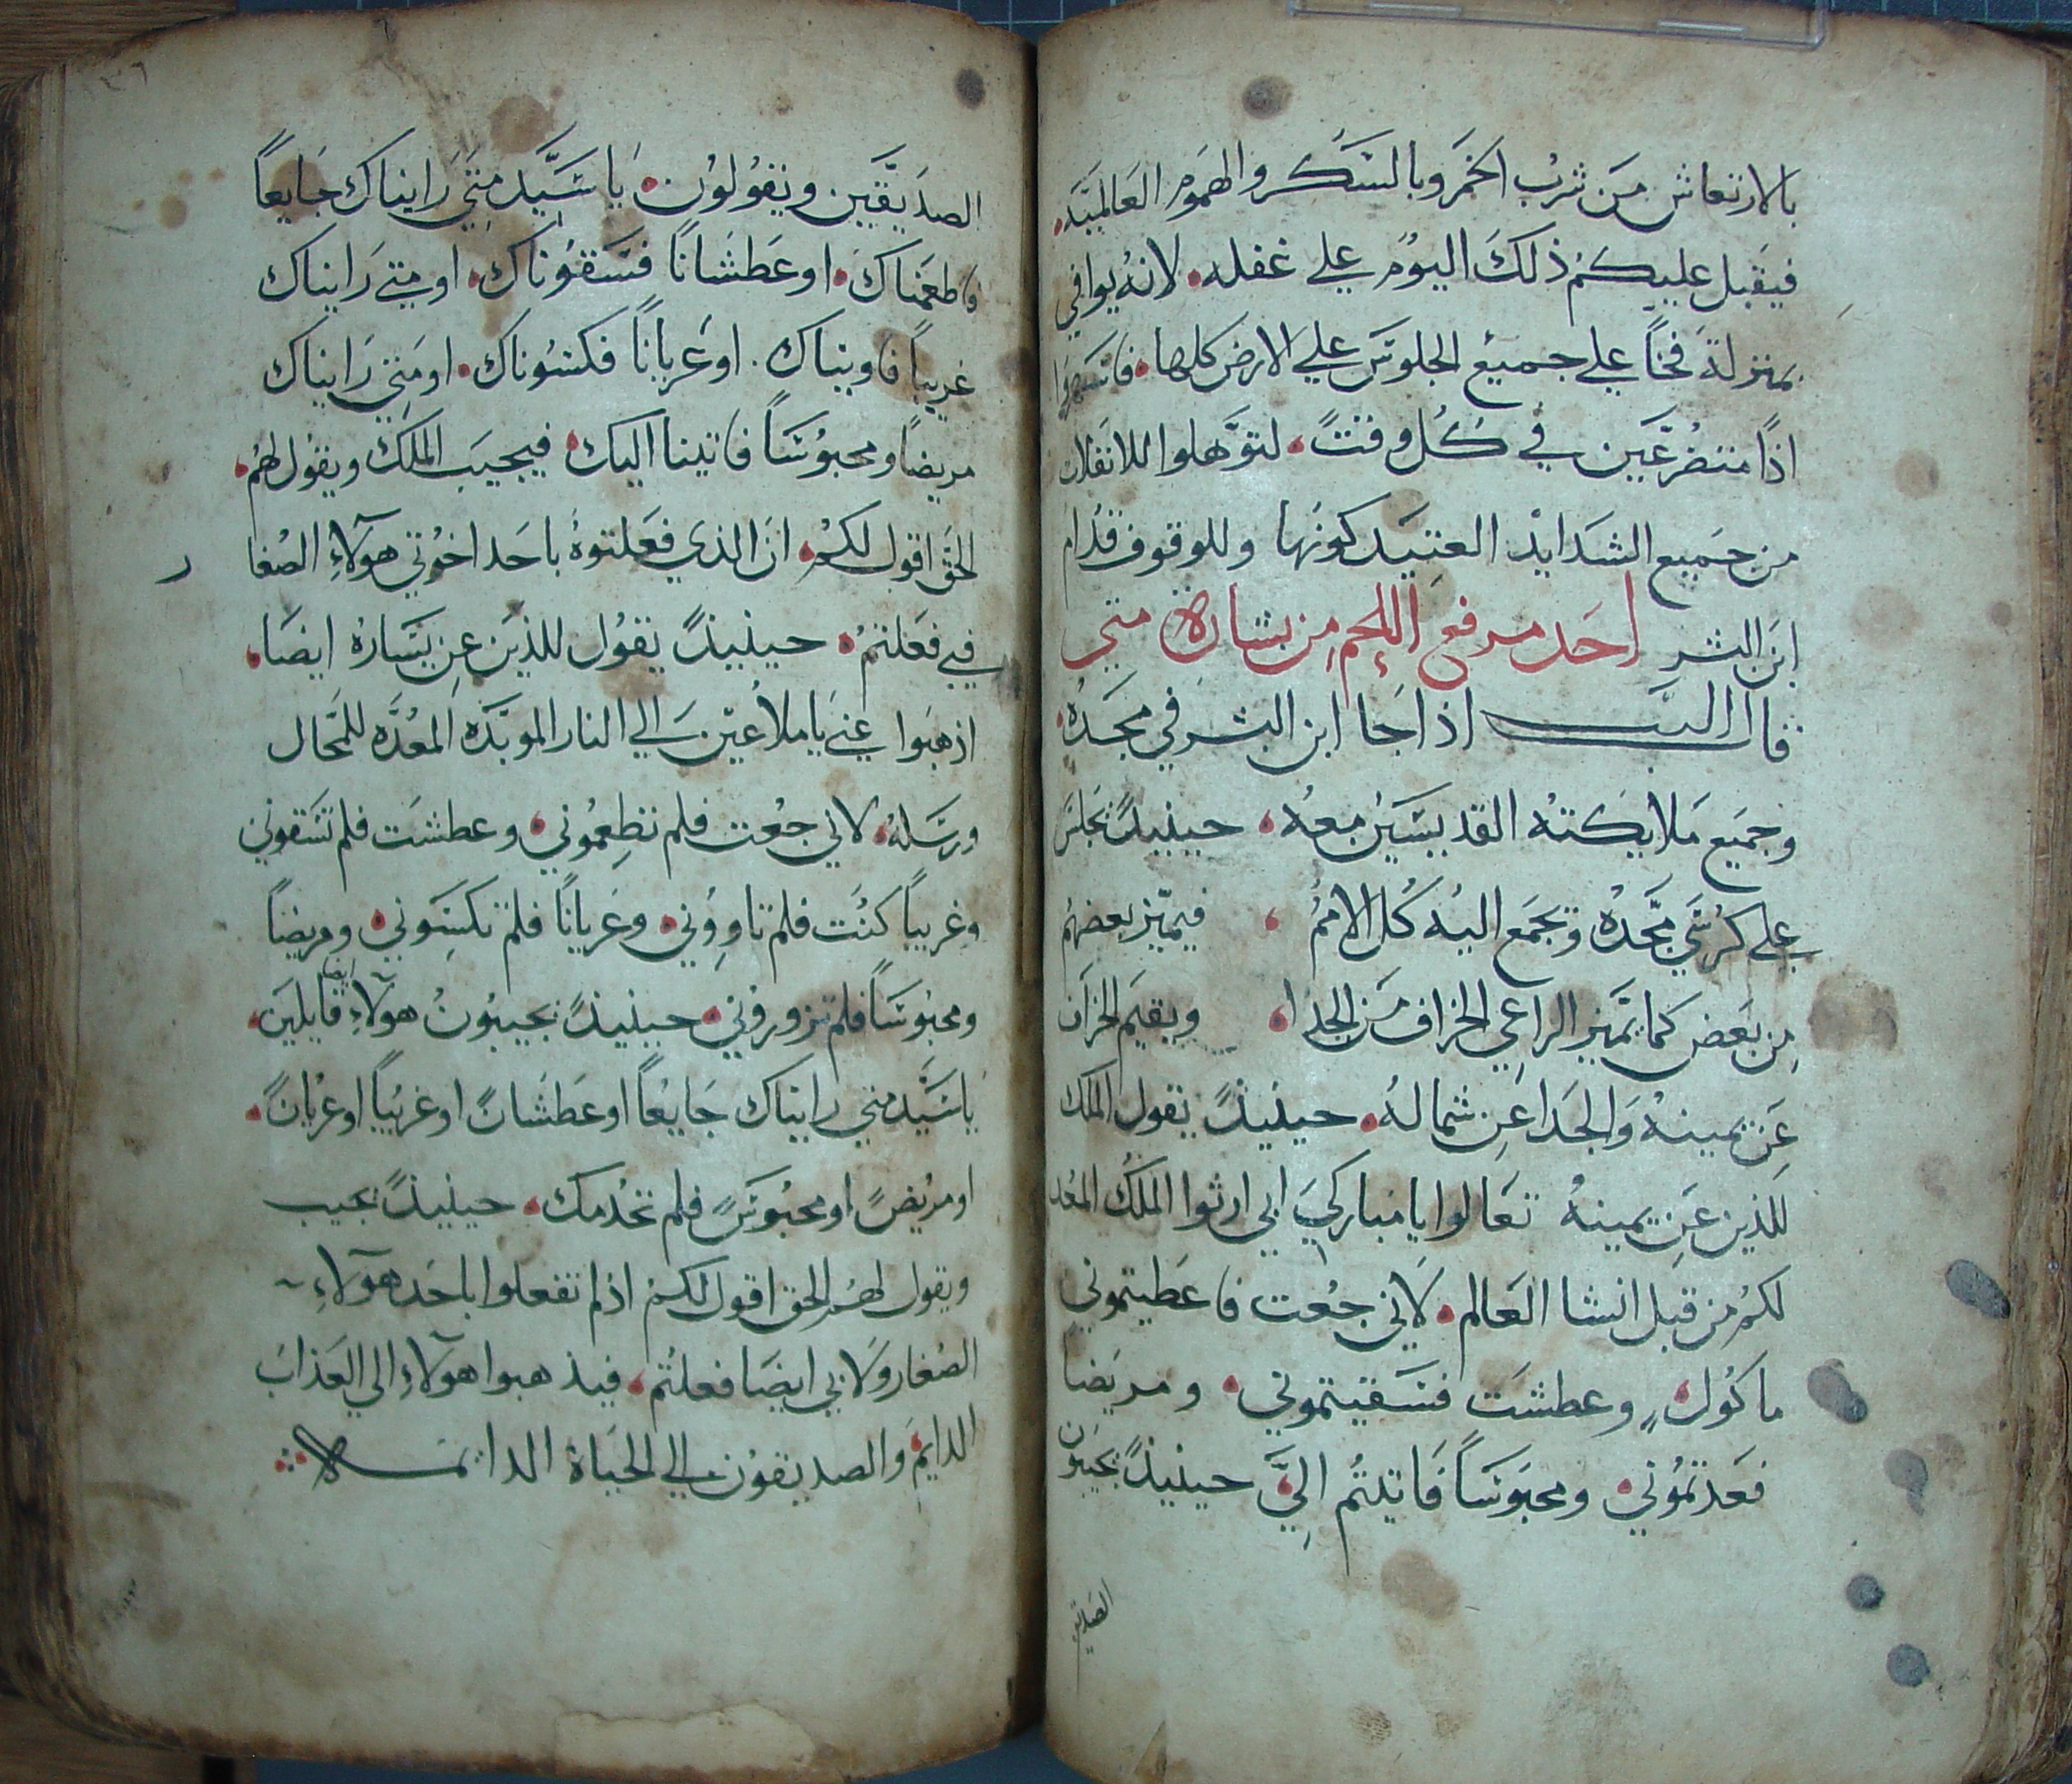 بالارتعاش من شرب الخمر وبالسكر والهموم العالميه
فيقبل عليكم ذلك اليوم علي غفله لانه يوافي
بمنزلة فخاً علي جميع الجلوس علي الارض كلها فاسهروا
اذاً متضرعين في كل وقت لتوهلوا للانفلات
من جميع الشدايد العتيد كونها وللوقوف قدام
ابن البشر احد مرفع اللحم من بشارة متي
قال الرب اذا جا ابن البشر في مجده
وجميع ملايكته القديسين معه حينيذ يجلس
علي كرسي مجده وتجمع اليه كل الامم فيميز بعضهم
من بعض كما يميز الراعي الخراف من الجدا ويقيم الخراف
عن يمينه والجدا عن شماله حينيذ يقول الملك
للذين عن يمينه تعالوا يا مباركي ابي ارثوا الملك المعد
لكم من قبل انشا العالم لاني جعت فاعطيتموني
ماكول وعطشت فسقيتموني ومريضا
فعدتموني ومحبوساً فاتيتم اليَّ حينيذ يجيبون
الصديقين
٣٦
الصديقين ويقولون يا سيد متي رايناك جايعاً
فاطعمناك او عطشاناً فسقوناك او متي رايناك
غريباً فاويناك او عرياناً فكسوناك او متي رايناك
مريضاً ومحبوساً فاتينا اليك فيجيب الملك ويقول لهم
الحق اقول لكم ان الذي فعلتوه باحد اخوتي هولاءِ الصغا
ر
في فعلتم حينيذ يقول للذين عن يساره ايضا
اذهبوا عني يا ملاعين الي النار الموبده المعده للمحال
ورسله لاني جعت فلم تطعموني وعطشت فلم تسقوني
وغريباً كنت فلم تاووني وعرياناً فلم تكسوني ومريضاً
ومحبوساً فلم تزوروني حينيذ يجيبون هولاءِ ايضا قايلين
يا سيد متي رايناك جايعاً او عطشانً او غريباً او عريانً
او مريضً او محبوسً فلم نخدمك حينيذ يجيب
ويقول لهم الحق اقول لكم اذ لم تفعلوا باحد هولاءِ
الصغار ولا بي ايضا فعلتم فيذهبوا هولاءِ الي العذاب
الدايم والصديقون الي الحياة الدايمه